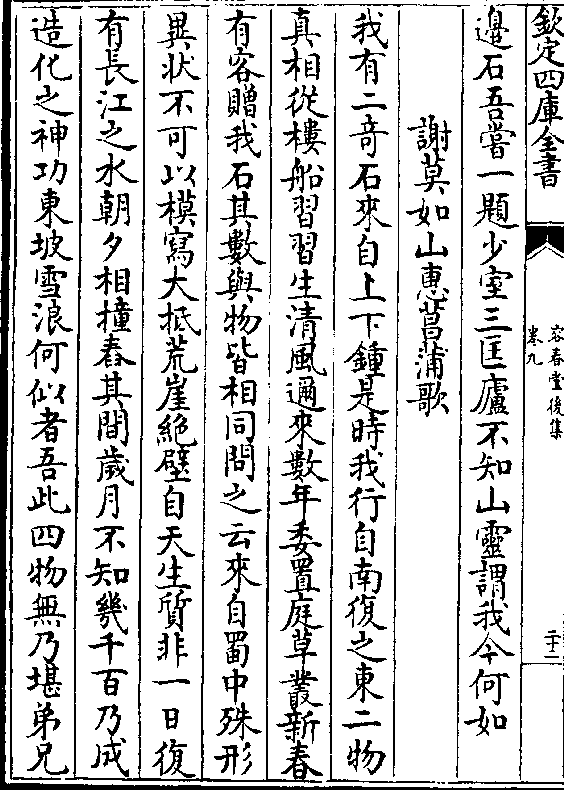 欽定四庫全書
容春堂後集
卷九
二十二
邊石吾嘗一題少室三匡廬不知山靈謂我今何如
謝莫如山惠菖蒲歌
我有二奇石來自上下鍾是時我行自南復之東二物
真相從樓船習習生清風邇來數年委置庭草叢新春
有客贈我石其數與物皆相同問之云來自蜀中殊形
異状不可以模寫大抵荒崖絶壁自天生質非一日復
有長江之水朝夕相撞舂其間歲月不知幾千百乃成
造化之神功東坡雪浪何似者吾此四物無乃堪弟兄